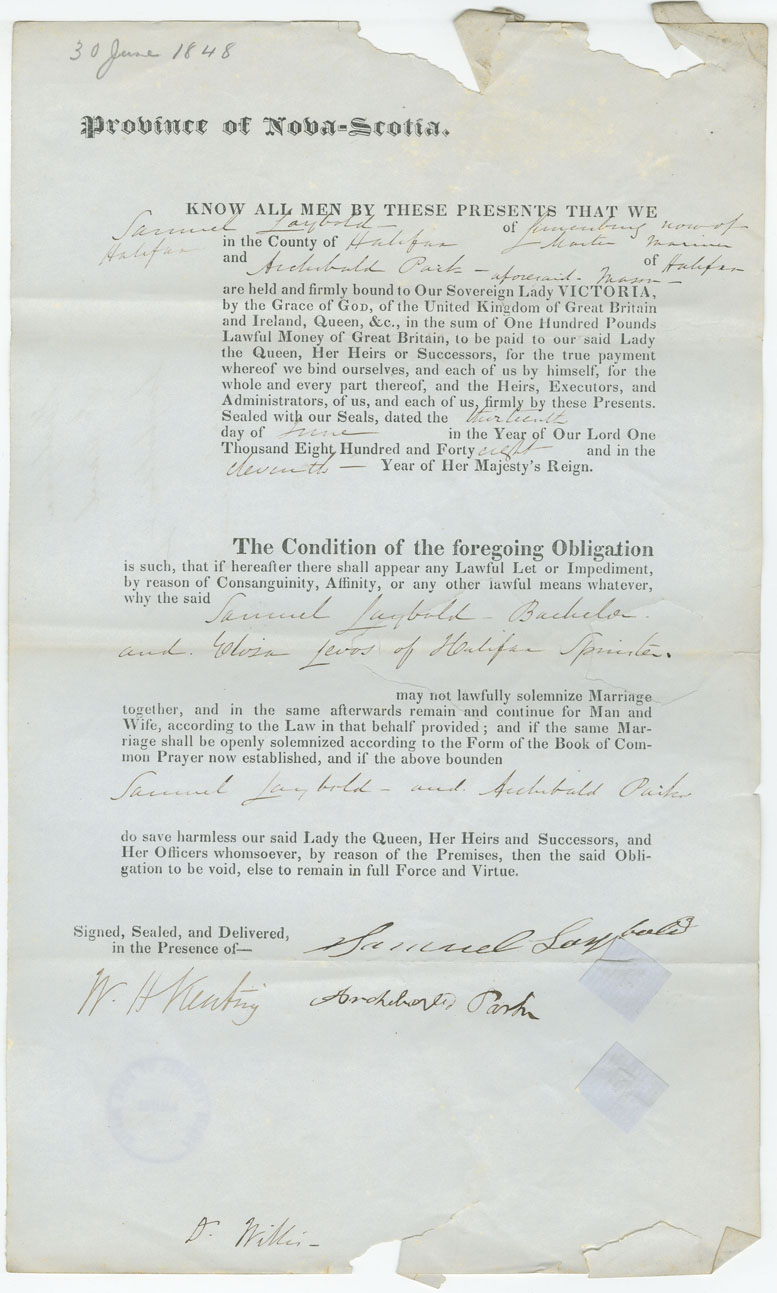 30 June 1848
Province of Nova-Scotia.
KNOW ALL MEN BY THESE PRESENTS THAT WE
Samuel Laybold - of Lunenburg now of
Halifax in the County of Halifax Master Mariner
and Archibald Park - of Halifax
aforesaid - Mason -
are held and firmly bound to Our Sovereign Lady VICTORIA,
by the Grace of GOD, of the United Kingdom of Great Britain
and Ireland, Queen, &c., in the sum of One Hundred Pounds
Lawful Money of Great Britain, to be paid to our said Lady
the Queen, Her Heirs or Successors, for the true payment
whereof we bind ourselves, and each of us by himself, for the
whole and every part thereof, and the Heirs, Executors, and
Administrators, of us, and each of us, firmly by these Presents.
Sealed with our Seals, dated the thirteenth
day of June in the Year of Our Lord One
Thousand Eight Hundred and Forty eight and in the
eleventh - Year of Her Majesty's Reign.
The Condition of the foregoing Obligation
is such, that if hereafter there shall appear any Lawful Let or Impediment,
by reason of Consanguinity, Affinity, or any other lawful means whatever,
why the said
Samuel Laybold - Bachelor.
and. Eliza of Halifax Spinster.
may not lawfully solemnize Marriage
together, and in the same afterwards remain and continue for Man and
Wife, according to the Law in that behalf provided; and if the same Mar-
riage shall be openly solemnized according to the Form of the Book of Com-
mon Prayer now established, and if the above bounden
Samuel Laybold - and. Archibald Park
do save harmless our said Lady the Queen, Her Heirs and Successors, and
Her Officers whomsoever, by reason of the Premises, then the said Obli-
gation to be void, else to remain in full Force and Virtue.
Signed, Sealed, and Delivered,
in the Presence of—
Samuel Laybold
W. H Keating
Archibald Park
Dr. Willis -